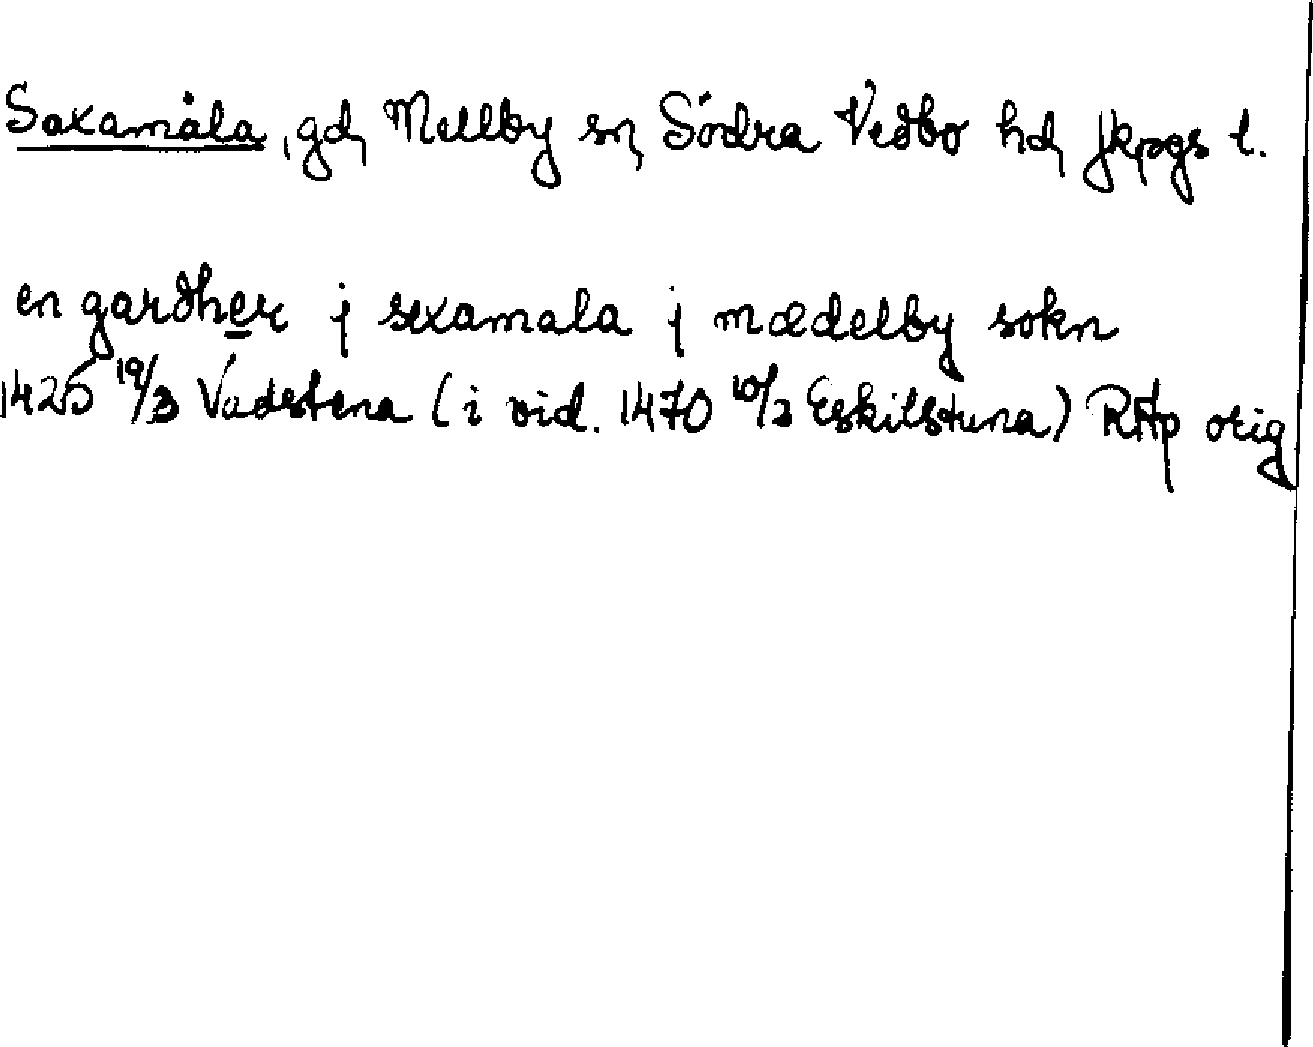 Saxamåla, gd, Mellby sn, Södra Vedbo hd, Jkpgs l.
en gardher j sexamala j mædelby sokn
1425 19/3 Vadstena (i vid. 1470 10/2 Eskilstuna) RAp orig